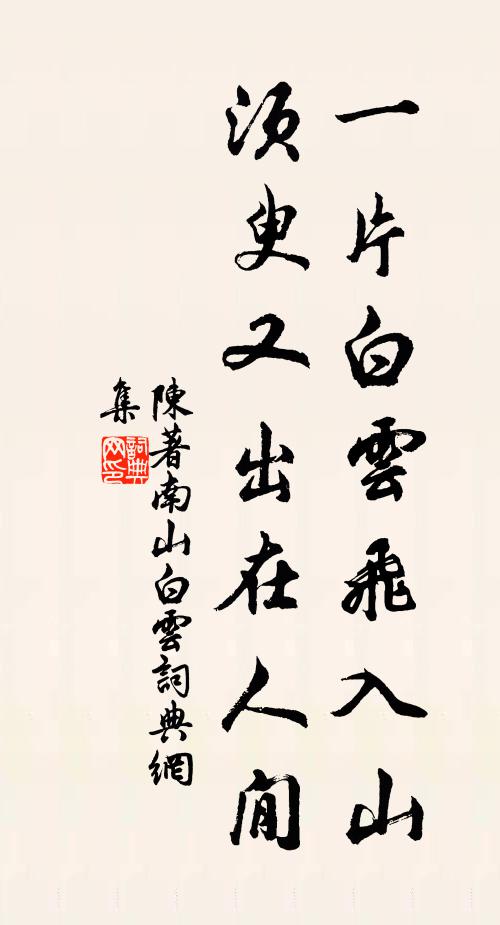 一片白雲飛入山
須臾又出在人間
陳著南山白雲詞典網
集
詞典網印